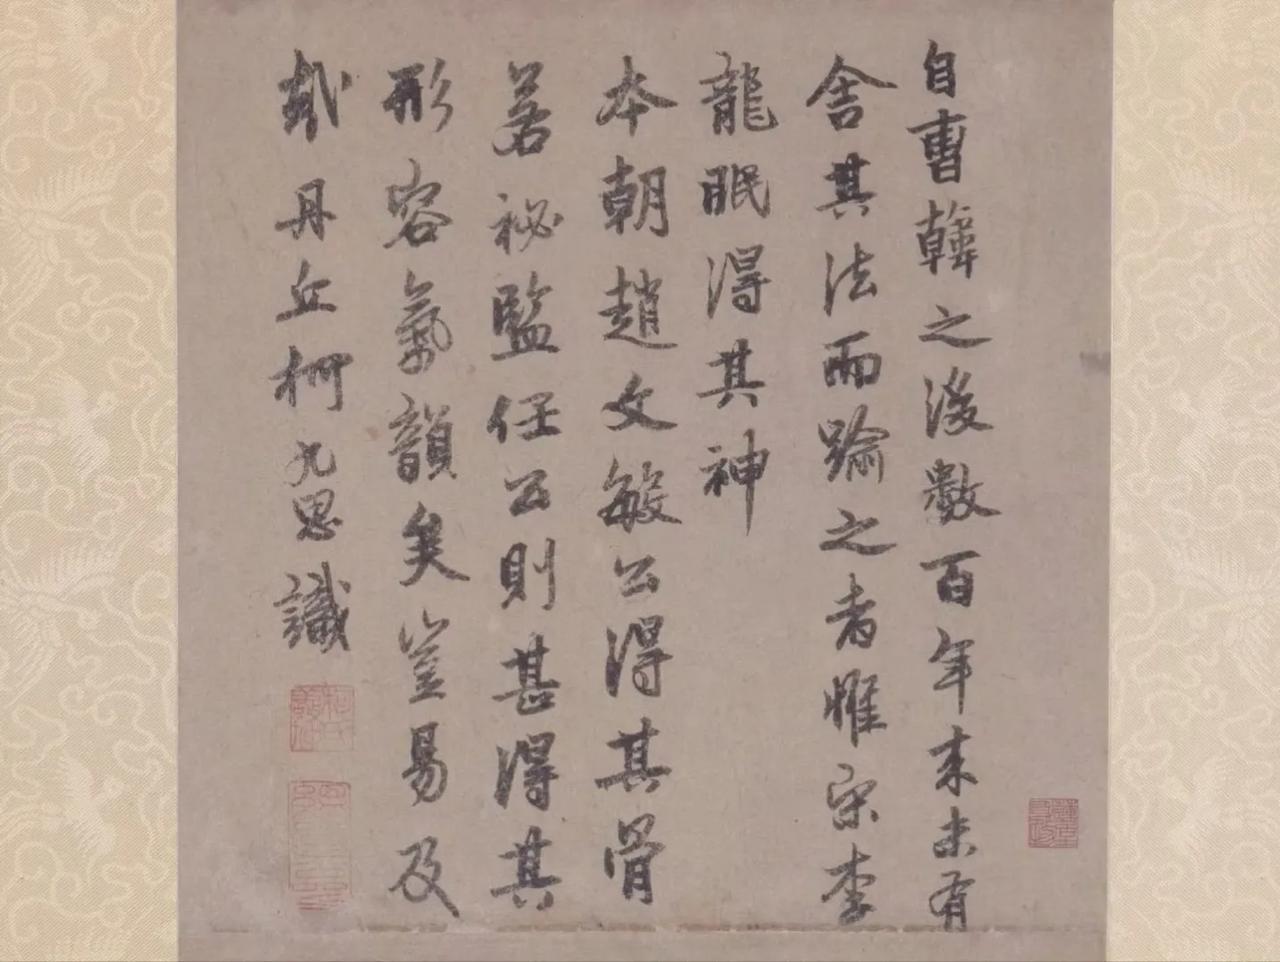 自曹韓之後數百年來未有
舍其法而踰之者惟宋李
龍眠得其神
本朝趙文敏公得其骨
若祕監任公則甚得其
形容氣韻矣豈易及
哉丹丘柯九思識